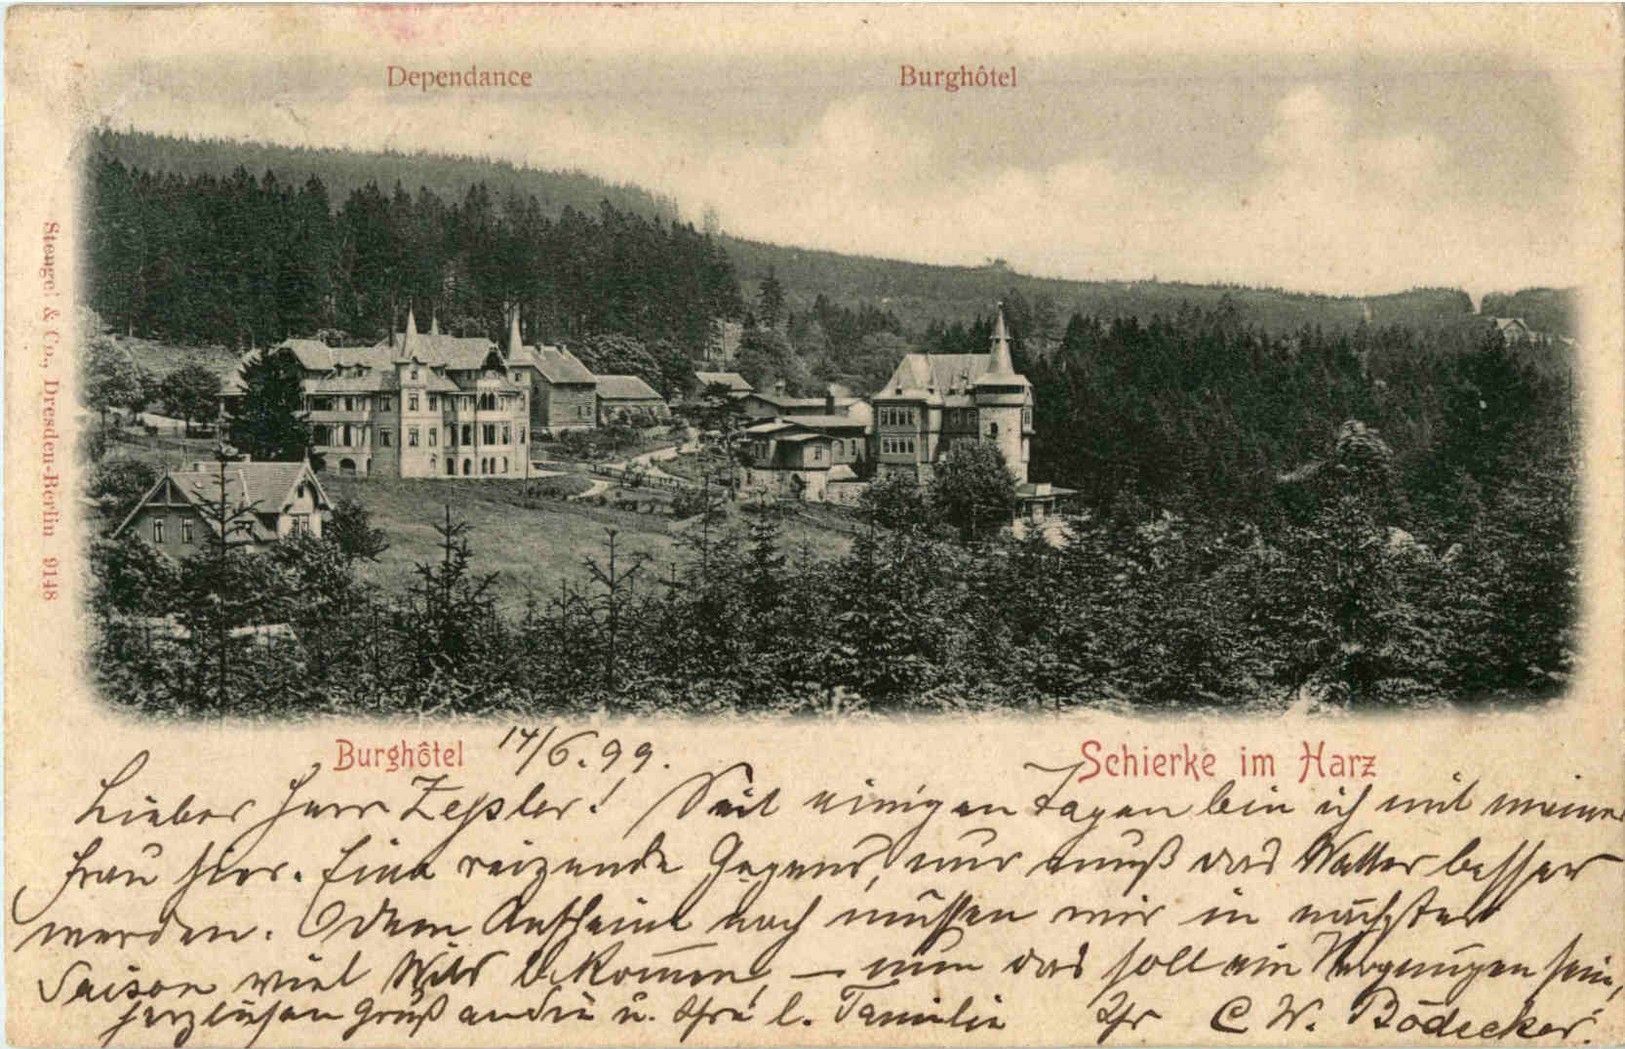 Dependance
Burghôtel
Stengel & Co., Dresden-Berlin 9148
Burghôtel
14/6.99.
Schierke im Harz
Lieber Herr Zeßler! Seit einigen Tagen bin ich mit meiner
Frau hier. Eine reizende Gegend, nur muß das Wetter besser
werden. Dem Anschein nach müssen wir in nächster
Saison viel Wild bekommen, – nun das soll ein Vergnügen sein,
herzlichen Gruß an Sie u. Ihre l. Familie Ihr C W. Bödecker.